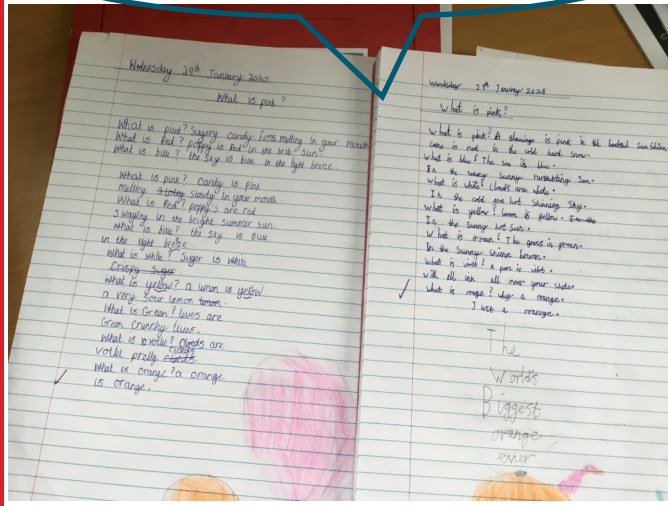 Wednesday 29th January 2020
What is pink?
What is pink? Sugery candy floss melting in your mouth
What is Red? poppy is Red in the brite sun.
What is blue? the sky is blue in the light breze.
What is punk? Candy is pink
melting slowly in your mouth.
What is Red? poppy's are red
swaying in the bright summer sun.
what is blue? the sky is blue
in the light breze
what is while? Suger is while
Crispy Suger
what is yellow? a lemon is yellow
a very sour lemon
What is Green? leves are
Green crunchy leves.
What is volit? Clouds are
volit pretty clouds.
What is orange? a orange
is orange.
What is pink?
What is pink? A flamingo is pink in Sun Shine
cane is red in the cold hard snow.
what is blue? The sea is blue.
In the wavey sunny Sea.
what is white? clouds are white.
In the cold and hot shinning Sky.
What is yellow? lemon is yellow.
In the sunny hot sun.
What is The grass is
In the Sunny Shine
What is a pen is
with all ink all over your
What is a orange.
Just a orange.
The
World's
Biggest
orange
ever